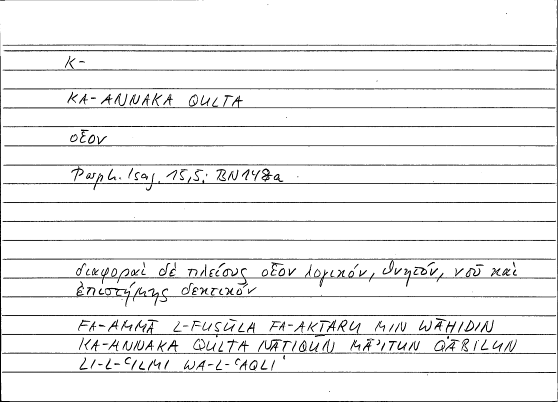 K-
KA-ANNAKA QULTA
οἷον
Porph. Isag. 15,5; BN148a
διαφοραὶ δὲ πλείους οἷον λογικόν, θνητόν, νοῦ καὶ
ἐπιστήμης δεκτικόν
FA-AMMĀ L-FUṢŪLU FA-AKṮARU MIN WĀḤIDIN
KA-ANNAKA QULTA NĀṬIQUN MĀʾITUN QĀBILUN
LI-L-ʿILMI WA-L-ʿAQLI